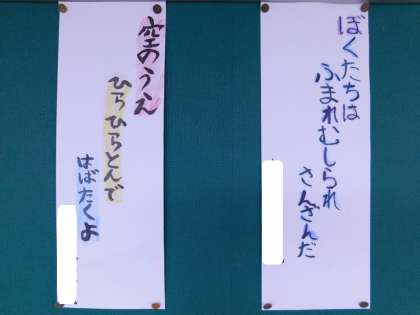 ぼくたちは
ふまれむしられ
さんざんだ
空のうえ
ひらひらとんで
はばたくよ